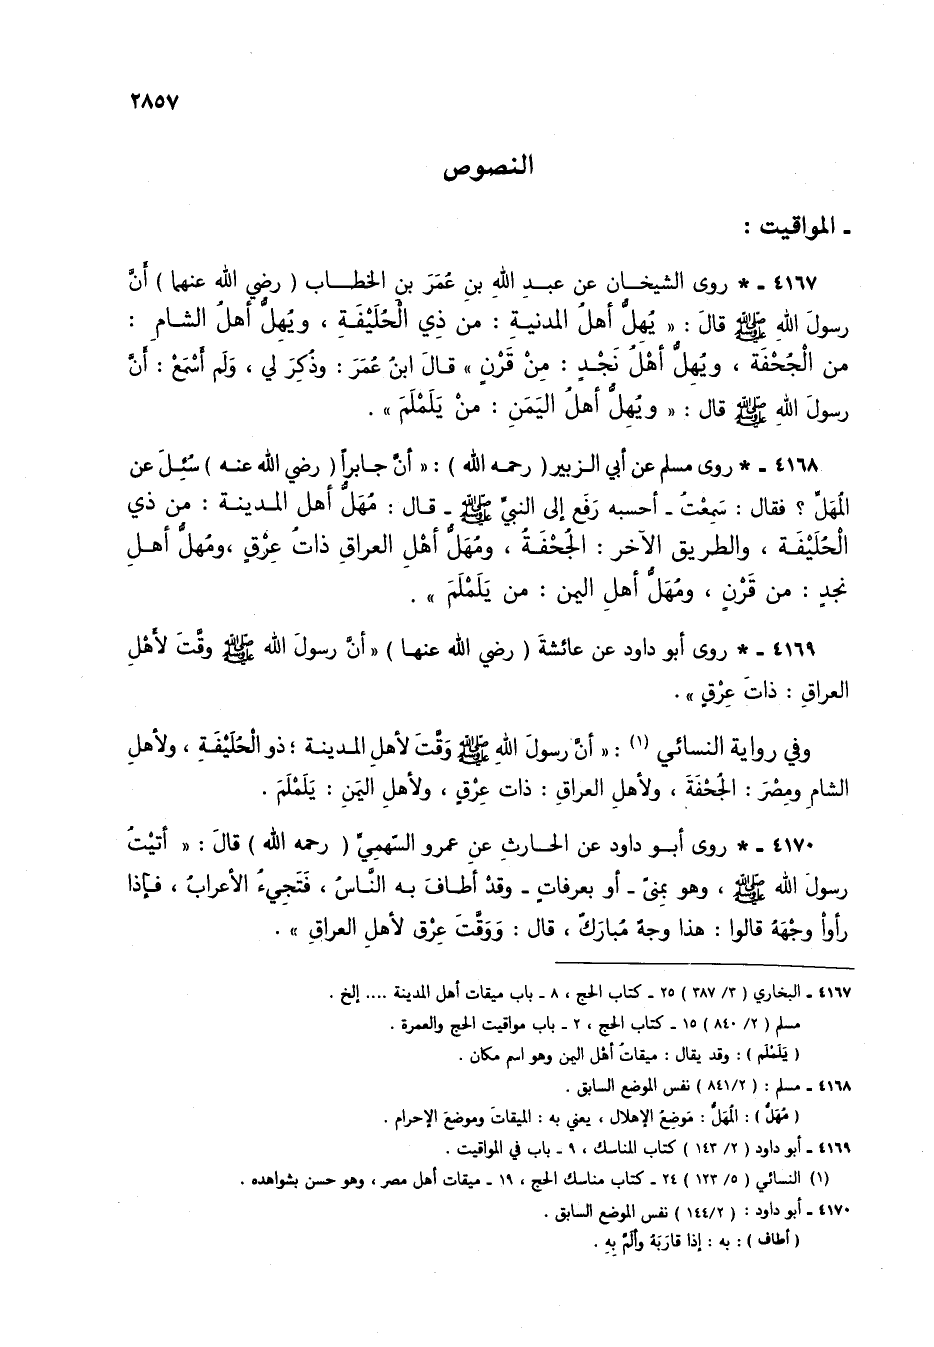 ٢٨٥٧
النصوص
ـ المواقيت :
٤١٦٧ ـ * روى الشيخان عن عبد اللهِ بنِ عُمَرَ بنِ الخطاب ( رضي الله عنهما ) أَنَّ
رسولَ اللهِ ﷺ قالَ : « يُهِلُّ أهلُ المدنية : من ذي الْحُلَيْفَةِ ، ويُهِلُّ أهلُ الشامِ :
من الْجُحْفَة ، ويُهِلُّ أَهْلُ نَجْدٍ : مِنْ قَرْنٍ » قالَ ابنُ عُمَرَ : وذُكِرَ لي ، وَلَم أَسْمَعْ : أَنَّ
رسولَ اللهِ ﷺ قال : « ويُهِلُّ أهلُ اليَمَنِ : منْ يَلَمْلَمَ » .
٤١٦٨ ـ * روى مسلم عن أبي الزبير ( رحمه الله ) : « أنَّ جابراً ( رضي الله عنه ) سُئِلَ عن
المُهَلِّ ؟ فقال : سَمِعْتُ ـ أحسبه رَفَع إلى النبيِّ ﷺ ـ قال : مُهَلُّ أهل المدينة : من ذي
الْحُلَيْفَة ، والطريق الآخر : الجُحْفَةُ ، ومُهَلُّ أهْلِ العراقِ ذاتُ عِرْقٍ ،ومُهلُّ أهلِ
نجدٍ : من قَرْنٍ ، ومُهَلُّ أهلِ اليمن : من يَلَمْلَمَ » .
٤١٦٩ ـ * روى أبو داود عن عائشةَ ( رضي الله عنها ) « أنَّ رسولَ الله ﷺ وقَّتَ لأَهْلِ
العراقِ : ذاتَ عِرْقٍ » .
وفي رواية النسائي (١) : « أنَّ رسولَ اللهِ ﷺ وَقَّتَ لأهلِ المدينة : ذو الْحُلَيْفَةِ ، ولأهلِ
الشامِ ومِصْرَ : الجُحْفَةَ ، ولأهلِ العراقِ : ذات عِرْقٍ ، ولأهلِ اليَمَنِ : يَلَمْلَمَ .
٤١٧٠ ـ * روى أبو داود عن الحارثِ عنِ عمرو السَّهميِّ ( رحمه الله ) قالَ : « أتيْتُ
رسولَ الله ﷺ ، وهو بمِنىً ـ أو بعرفاتٍ ـ وقدْ أطافَ به النَّاسُ ، فَتَجِيءُ الأعرابُ ، فإذا
رأوا وجْهَهُ قالوا : هذا وجهٌ مُبارَكٌ ، قال : وَوَقَّتَ عِرْق لأهلِ العراقِ » .
٤١٦٧ ـ البخاري ( ٣/ ٣٨٧ ) ٢٥ ـ كتاب الحج ، ٨ ـ باب ميقات أهل المدينة .... إلخ .
مسلم ( ٢/ ٨٤٠ ) ١٥ ـ كتاب الحج ، ٢ ـ باب مواقيت الحج والعمرة .
( يَلَمْلَم ) : وقد يقال : ميقاتُ أهْل اليمن وهو اسم مكان .
٤١٦٨ ـ مسلم : ( ٨٤١/٢ ) نفس الموضع السابق .
( مُهَلُّ ) : المُهَلُّ : مَوضِعُ الإهلال ، يعني به : الميقاتَ وموضعَ الإحرام .
٤١٦٩ ـ أبو داود ( ٢/ ١٤٣ ) كتاب المناسك ، ٩ ـ باب في المواقيت .
(١) النسائي ( ٥/ ١٢٣ ) ٢٤ ـ كتاب مناسك الحج ، ١٩ ـ ميقات أهل مصر ، وهو حسن بشواهده .
٤١٧٠ ـ أبو داود : ( ١٤٤/٢ ) نفس الموضع السابق .
( أطاف ) : به : إذا قارَبَهُ وأَلَمَّ بِهِ .